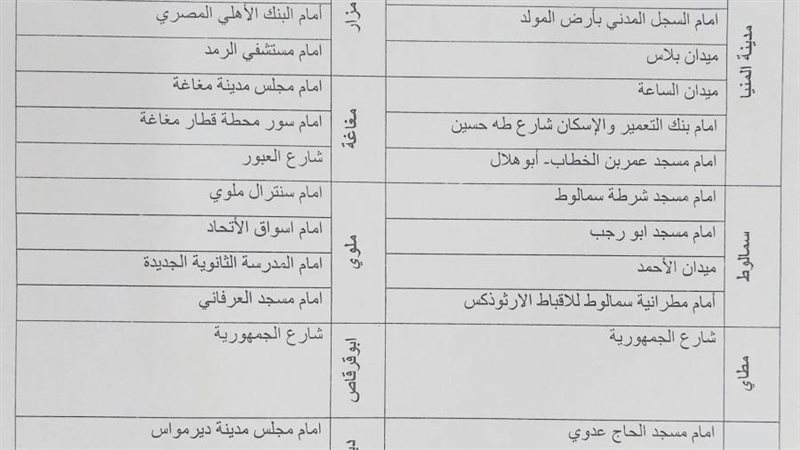 مدينة المنيا
امام السجل المدني بأرض المولد
ميدان بلاس
ميدان الساعة
امام بنك التعمير والإسكان شارع طه حسين
امام مسجد عمربن الخطاب- أبوهلال
سمالوط
امام مسجد شرطة سمالوط
امام مسجد ابو رجب
ميدان الأحمد
أمام مطرانية سمالوط للاقباط الارثوذكس
مطاي
شارع الجمهورية
امام مسجد الحاج عدوي
مزار
أمام البنك الأهلي المصري
امام مستشفي الرمد
مغاغة
امام مجلس مدينة مغاغة
امام سور محطة قطار مغاغة
شارع العبور
ملوي
امام سنترال ملوي
امام اسواق الأتحاد
امام المدرسة الثانوية الجديدة
امام مسجد العرفاني
ابوقرقاص
شارع الجمهورية
امام مجلس مدينة ديرمواس